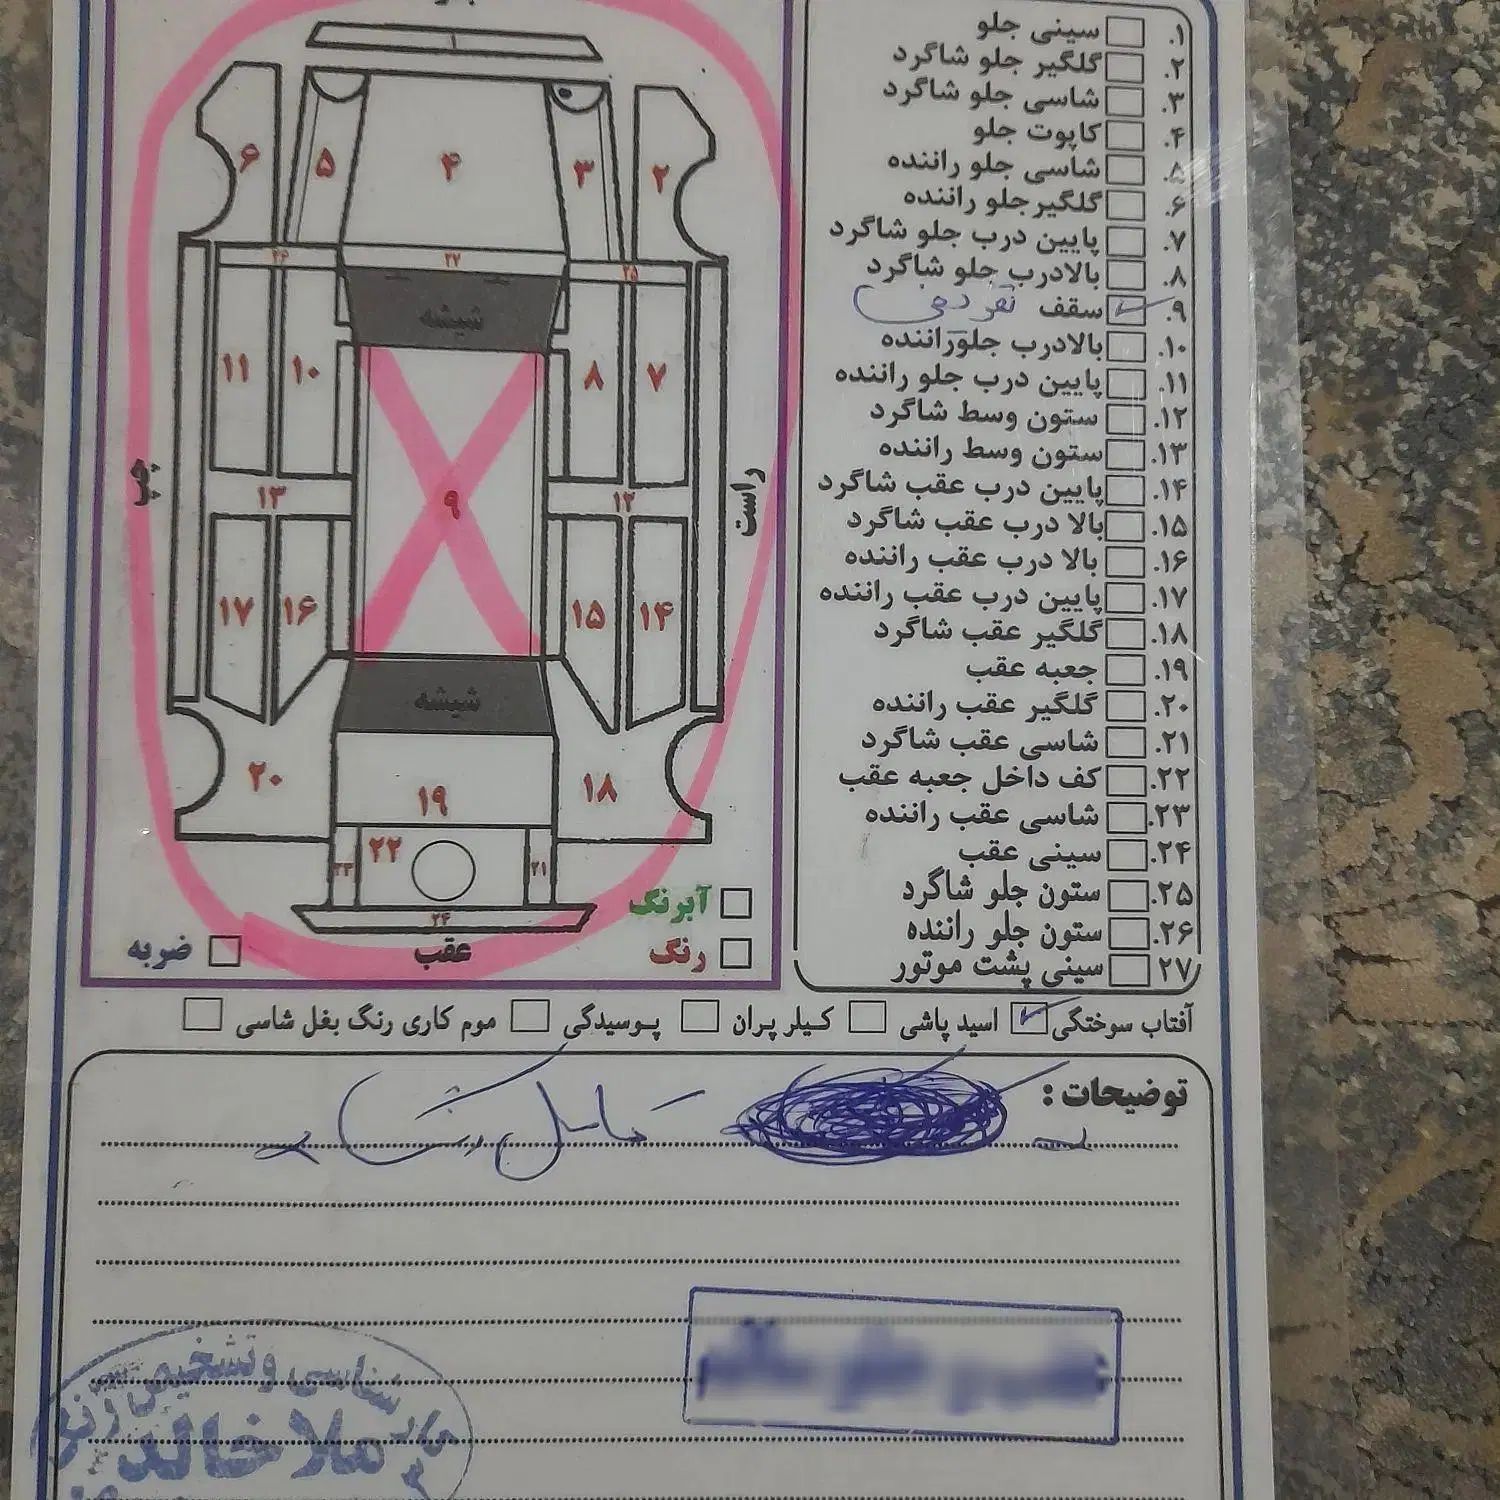 ۱. سینی جلو
۲. گلگیر جلو شاگرد
۳. شاسی جلو شاگرد
۴. کاپوت جلو
۵. شاسی جلو راننده
۶. گلگیرجلو راننده
۷. پایین درب جلو شاگرد
۸. بالادرب جلو شاگرد
۹. سقف
۱۰. بالادرب جلوراننده
۱۱. پایین درب جلو راننده
۱۲. ستون وسط شاگرد
۱۳. ستون وسط راننده
۱۴. پایین درب عقب شاگرد
۱۵. بالا درب عقب شاگرد
۱۶. بالا درب عقب راننده
۱۷. پایین درب عقب راننده
۱۸. گلگیر عقب شاگرد
۱۹. جعبه عقب
۲۰. گلگیر عقب راننده
۲۱. شاسی عقب شاگرد
۲۲. کف داخل جعبه عقب
۲۳. شاسی عقب راننده
۲۴. سینی عقب
۲۵. ستون جلو شاگرد
۲۶. ستون جلو راننده
۲۷. سینی پشت موتور
۱
۲ ۳ ۴ ۵ ۶
۲۵ ۲۷ ۲۶
شیشه
۷ ۸ ۱۰ ۱۱
راست ۹ چپ
۱۲ ۱۳
۱۴ ۱۵ ۱۶ ۱۷
شیشه
۱۸ ۱۹ ۲۰
۲۱ ۲۲ ۲۳
۲۴
آبرنگ
رنگ عقب ضربه
آفتاب سوختگی اسید پاشی کیلر پران پوسیدگی موم کاری رنگ بغل شاسی
توضیحات :
کارشناسی و تشخیص رنگ
ملا خالد